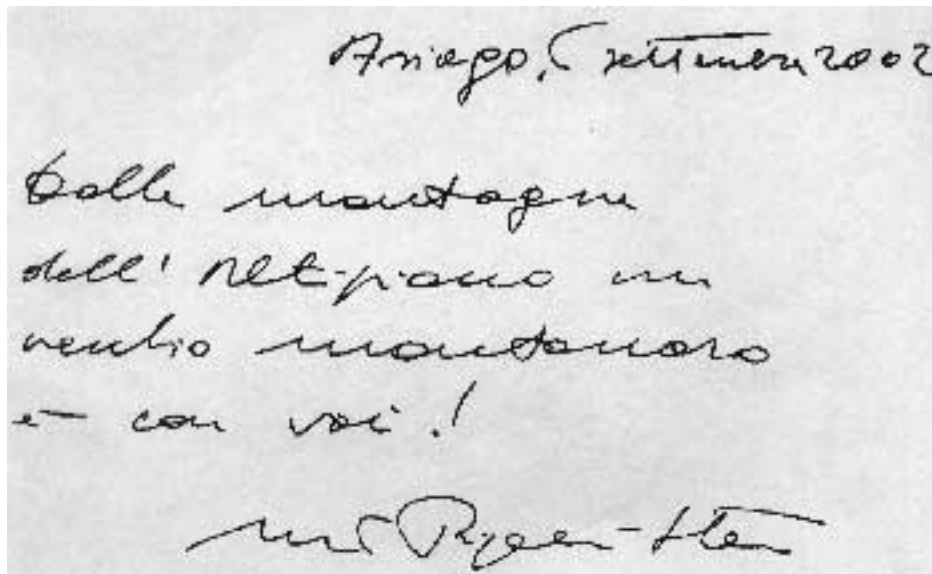 Asiago, 5 settembre 2002
Dalle montagne
dell'Altipiano un
vecchio montanaro
è con voi!
Mario Rigoni Stern